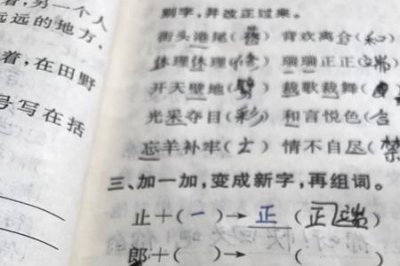 着,另一个人
远远的地方,
着,在田野
号写在括
别字,并改正过来。
街头港尾( ) 背欢离合( )
休理休理(修) 瑞瑞正正(端)
开天壁地( ) 裁歌裁舞( )
光采夺目(彩) 和言悦色( )
忘羊补牢( ) 情不自尽(禁
三、加一加,变成新字,再组词。
止+(一)→正(正端)
郎+( )→ ( )